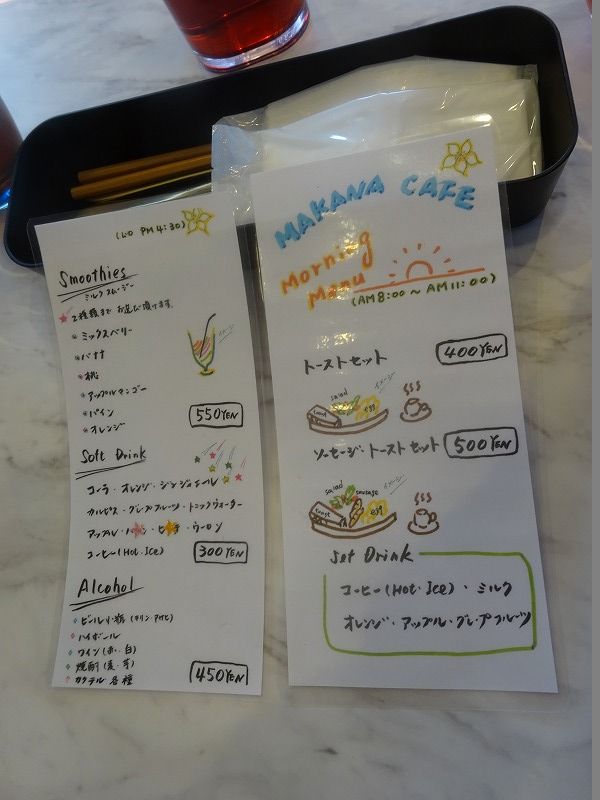 (LO PM 4:30)
Smoothies
ミルクスムージー
2種類までお選び頂けます。
ミックスベリー
バナナ
桃
アップルマンゴー
パイン
オレンジ
550YEN
イメージ
Soft Drink
コーラ・オレンジ・ジンジャエール
カルピス・グレープフルーツ・トニックウォーター
アップル・
・ウーロン
コーヒー(Hot・Ice)
300YEN
Alcohol
ビール小瓶(キリン・アサヒ)
ハイボール
ワイン(赤・白)
焼酎(麦・芋)
カクテル各種
450YEN
MAKANA CAFE
Morning
Menu
(AM8:00~AM11:00)
トーストセット
400YEN
salad
イメージ
toast
egg
ソーセージ・トーストセット
500YEN
salad
イメージ
sausage
toast
egg
Set Drink
コーヒー(Hot・Ice)・ミルク
オレンジ・アップル・グレープフルーツ